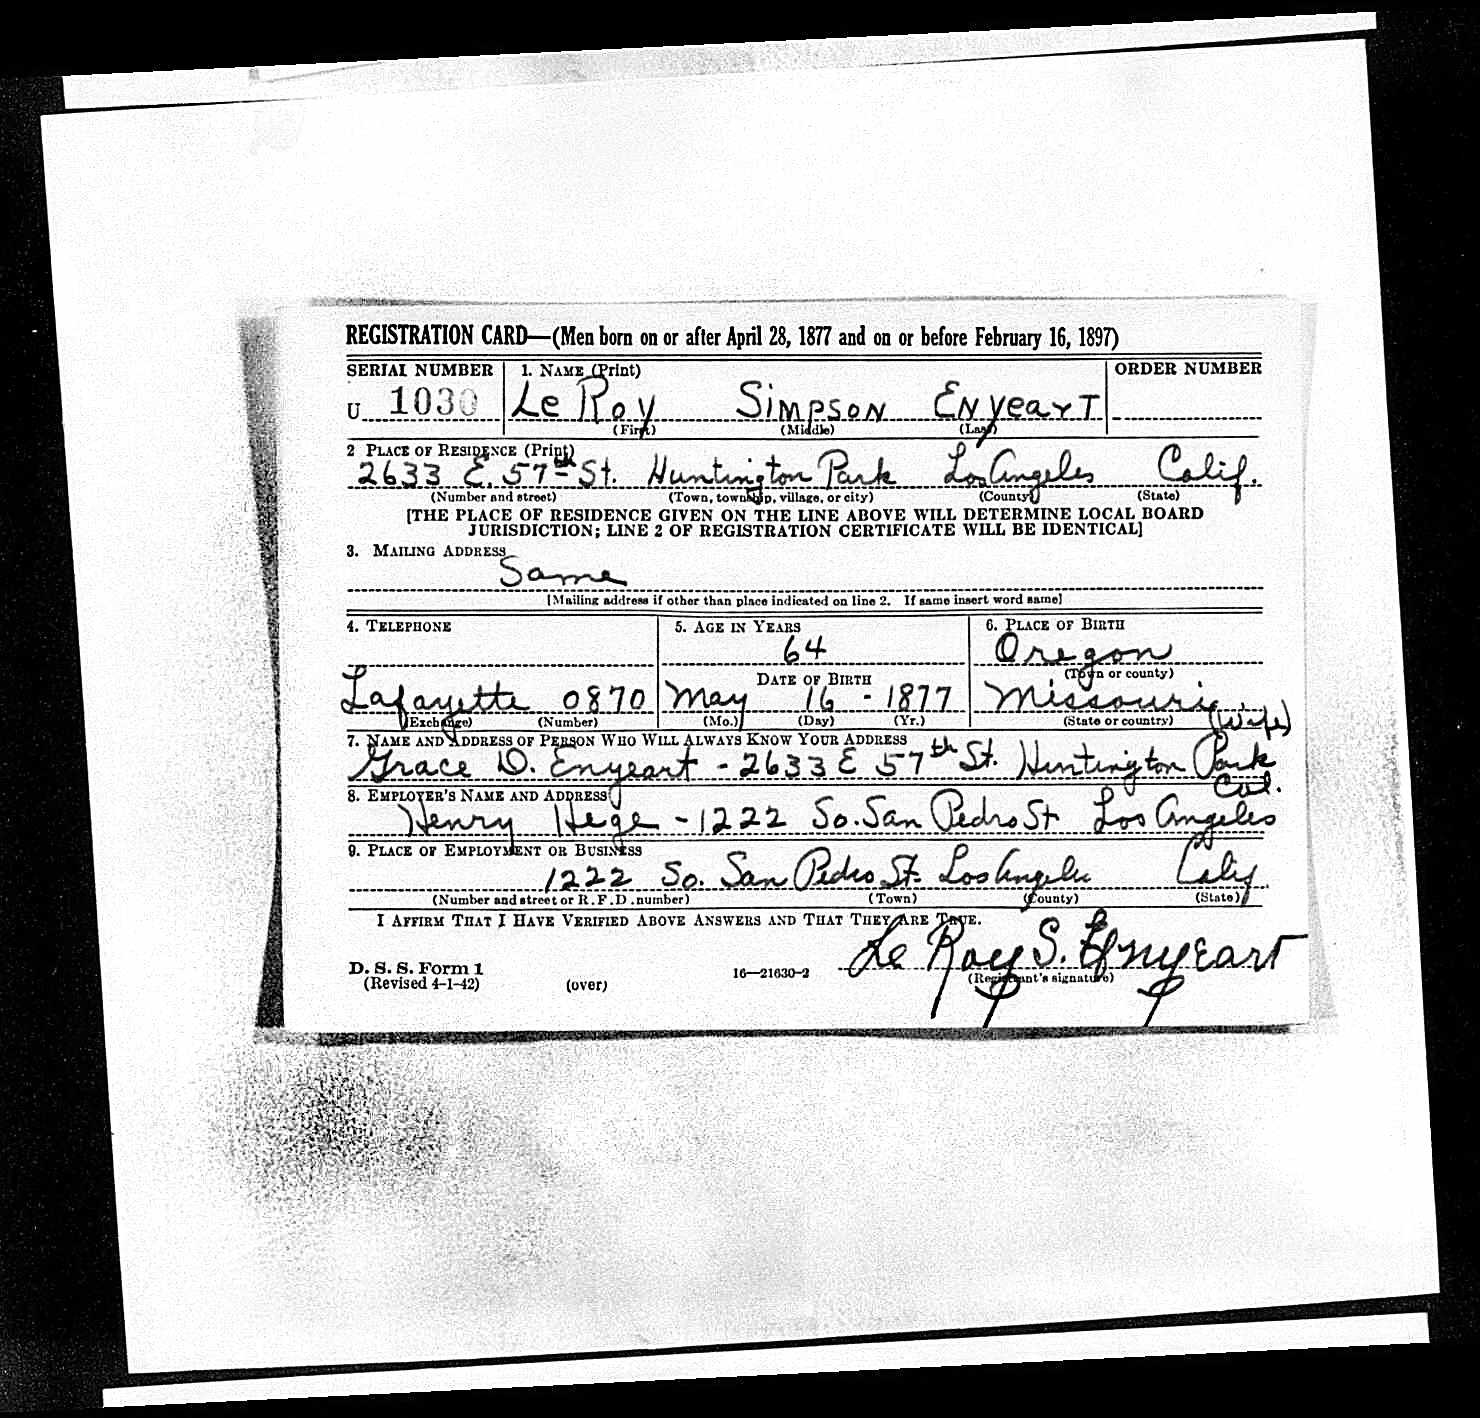 REGISTRATION CARD—(Men born on or after April 28, 1877 and on or before February 16, 1897)
SERIAL NUMBER 1. NAME (Print) ORDER NUMBER
U 1030 Le Roy Simpson Enyeart
(First) (Middle) (Last)
2 PLACE OF RESIDENCE (Print)
2633 E. 57th St. Huntington Park Los Angeles Calif.
(Number and street) (Town, township, village, or city) (County) (State)
[THE PLACE OF RESIDENCE GIVEN ON THE LINE ABOVE WILL DETERMINE LOCAL BOARD
JURISDICTION; LINE 2 OF REGISTRATION CERTIFICATE WILL BE IDENTICAL]
3. MAILING ADDRESS
Same
[Mailing address if other than place indicated on line 2. If same insert word same]
4. TELEPHONE 5. AGE IN YEARS 6. PLACE OF BIRTH
64 Oregon
DATE OF BIRTH (Town or county)
Lafayette 0870 May 16 - 1877 Missouri
(Exchange) (Number) (Mo.) (Day) (Yr.) (State or country) (Wife)
7. NAME AND ADDRESS OF PERSON WHO WILL ALWAYS KNOW YOUR ADDRESS
Grace D. Enyeart - 2633 E 57th St. Huntington Park
Cal.
8. EMPLOYER'S NAME AND ADDRESS
Henry Hege - 1222 So. San Pedro St Los Angeles
9. PLACE OF EMPLOYMENT OR BUSINESS
1222 So. San Pedro St. Los Angeles Calif
(Number and street or R.F.D. number) (Town) (County) (State)
I AFFIRM THAT I HAVE VERIFIED ABOVE ANSWERS AND THAT THEY ARE TRUE.
Le Roy S. Enyeart
D. S. S. Form 1 16—21630-2 (Registrant's signature)
(Revised 4-1-42) (over)